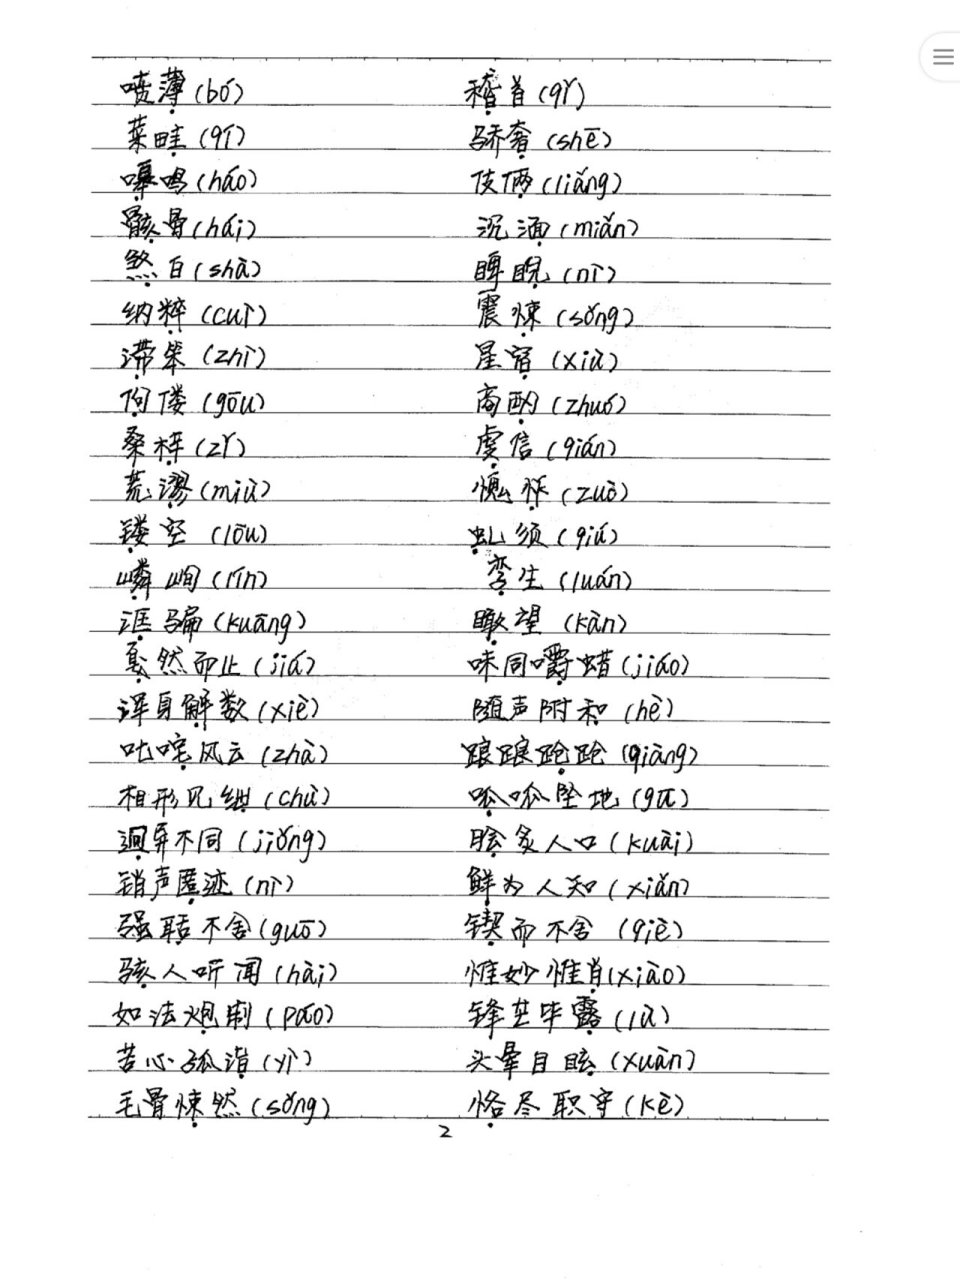 喷薄(bó) 稽首(qǐ)
菜畦(qí) 骄奢(shē)
嗥鸣(háo) 伎俩(liǎng)
骸骨(hái) 沉湎(miǎn)
煞白(shà) 睥睨(nì)
纳粹(cuì) 震悚(sǒng)
滞笨(zhì) 星宿(xiù)
佝偻(gōu) 商酌(zhuó)
桑梓(zǐ) 虔信(qián)
荒谬(miù) 愧怍(zuò)
镂空(lōu) 虬须(qiú)
嶙峋(lín) 孪生(luán)
诓骗(kuāng) 瞰望(kàn)
戛然而止(jiá) 味同嚼蜡(jiáo)
浑身解数(xiè) 随声附和(hè)
叱咤风云(zhà) 踉踉跄跄(qiàng)
相形见绌(chù) 呱呱坠地(gū)
迥异不同(jiǒng) 脍炙人口(kuài)
销声匿迹(nì) 鲜为人知(xiǎn)
强聒不舍(guō) 锲而不舍(qiè)
骇人听闻(hài) 惟妙惟肖(xiào)
如法炮制(páo) 锋芒毕露(lù)
苦心孤诣(yì) 头晕目眩(xuàn)
毛骨悚然(sǒng) 恪尽职守(kè)
2